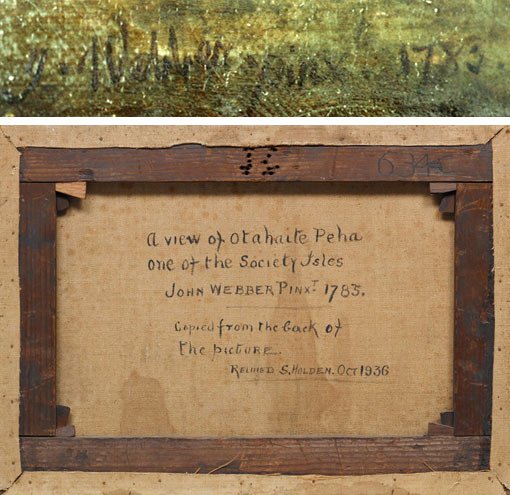 J. Webber pinxt 1783.
634
A view of Otahaite Peha
one of the Society Isles
JOHN WEBBER PINXT 1783.
Copied from the back of
the picture.
RELINED S. HOLDEN. OCT 1936